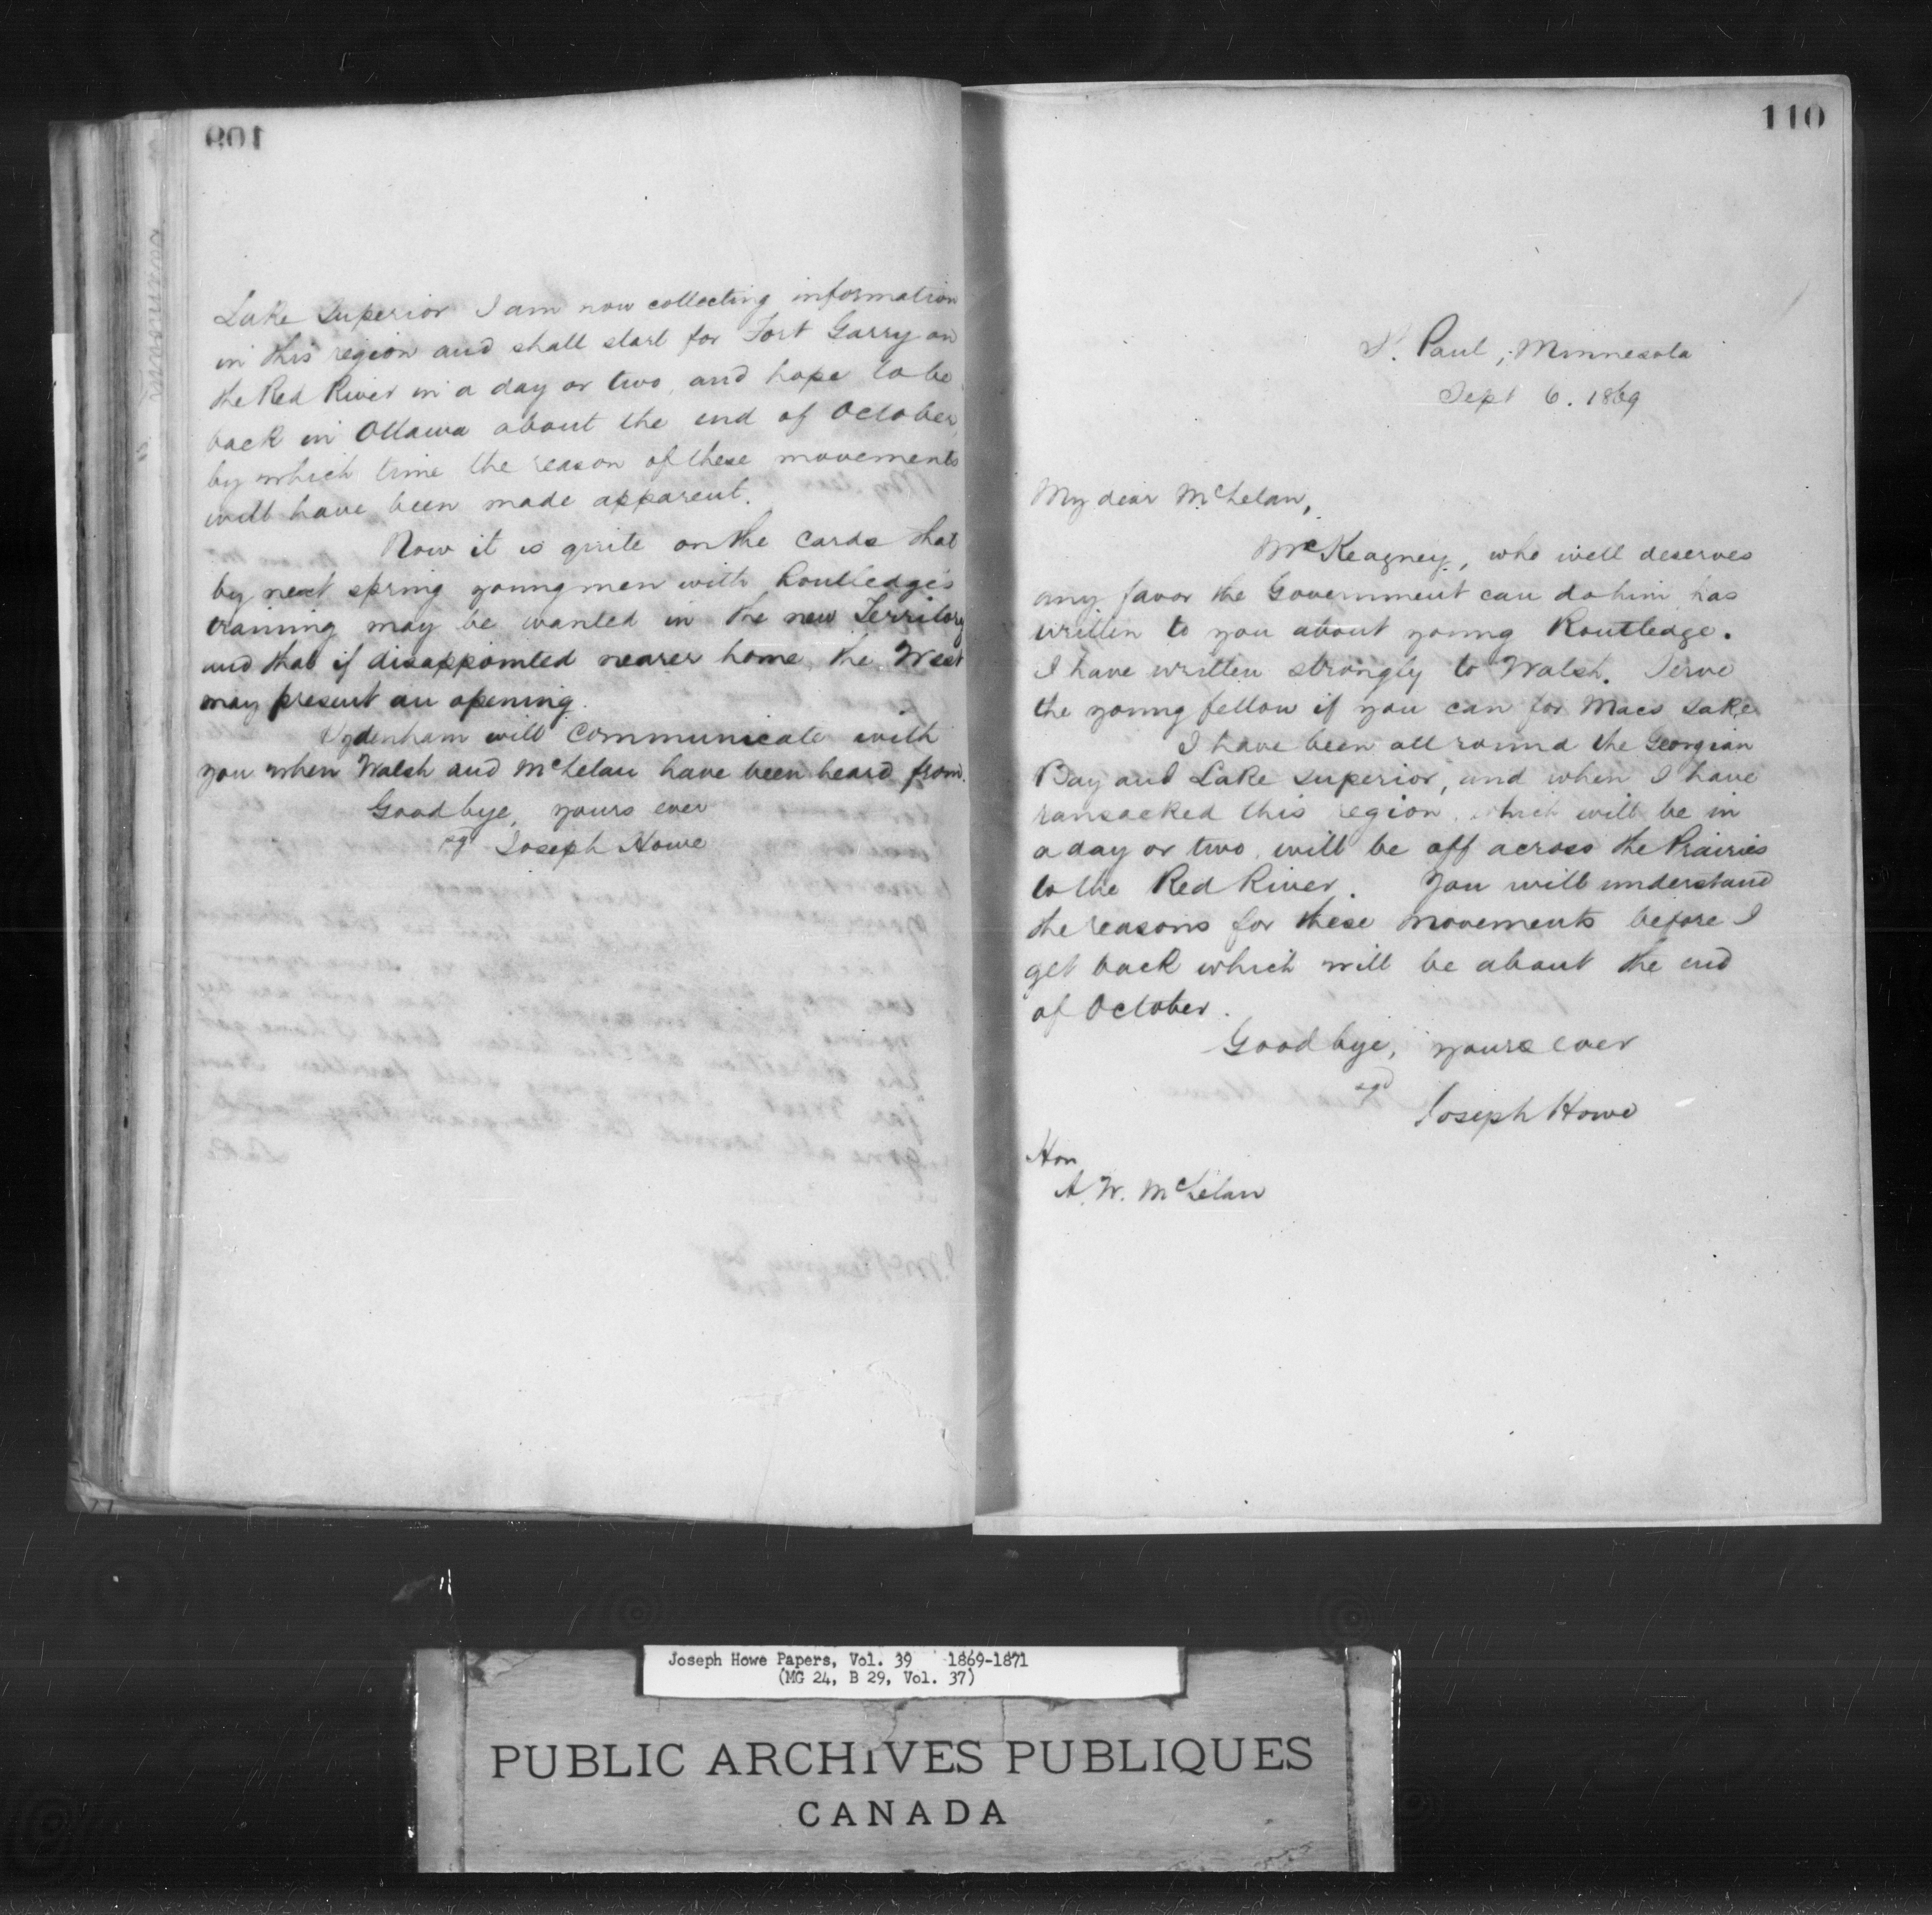 109
Lake Superior I am now collecting information
in this region and shall start for Fort Garry on
the Red River in a day or two, and hope to be
back in Ottawa about the end of October,
by which time the reason of these movements
will have been made apparent.
Now it is quite on the cards that
by next spring young men with Routledge's
training may be wanted in the new Territory
and that if disappointed nearer home, the West
may present an opening.
Sydenham will communicate with
you when Walsh and McLelan have been heard from.
Good bye, yours ever
sg Joseph Howe
110
St. Paul, Minnesota
Sept 6. 1869
My dear McLelan,
McKeagney, who well deserves
any favor the Government can do him has
written to you about young Routledge.
I have written strongly to Walsh. Serve
the young fellow if you can for Macs sake
I have been all round the Georgian
Bay and Lake Superior, and when I have
ransacked this region, which will be in
a day or two, will be off across the Prairies
to the Red River. You will understand
the reasons for these movements before I
get back which will be about the end
of October.
Good bye, yours ever
sgd
Joseph Howe
Hon
A. W. McLelan
Joseph Howe Papers, Vol. 39 1869-1871
(MG 24, B 29, Vol. 37)
PUBLIC ARCHIVES PUBLIQUES
CANADA